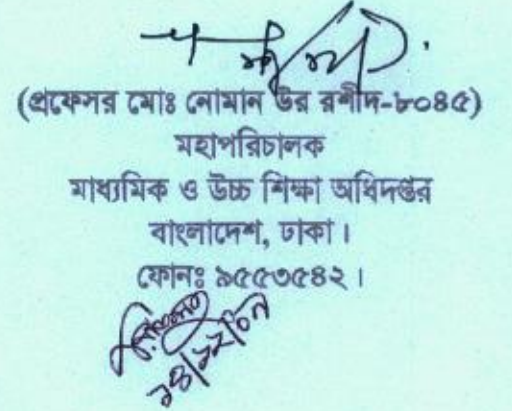 (প্রফেসর মোঃ নোমান উর রশীদ-৮০৪৫)
মহাপরিচালক
মাধ্যমিক ও উচ্চ শিক্ষা অধিদপ্তর
বাংলাদেশ, ঢাকা।
ফোনঃ ৯৫৫৩৫৪২।